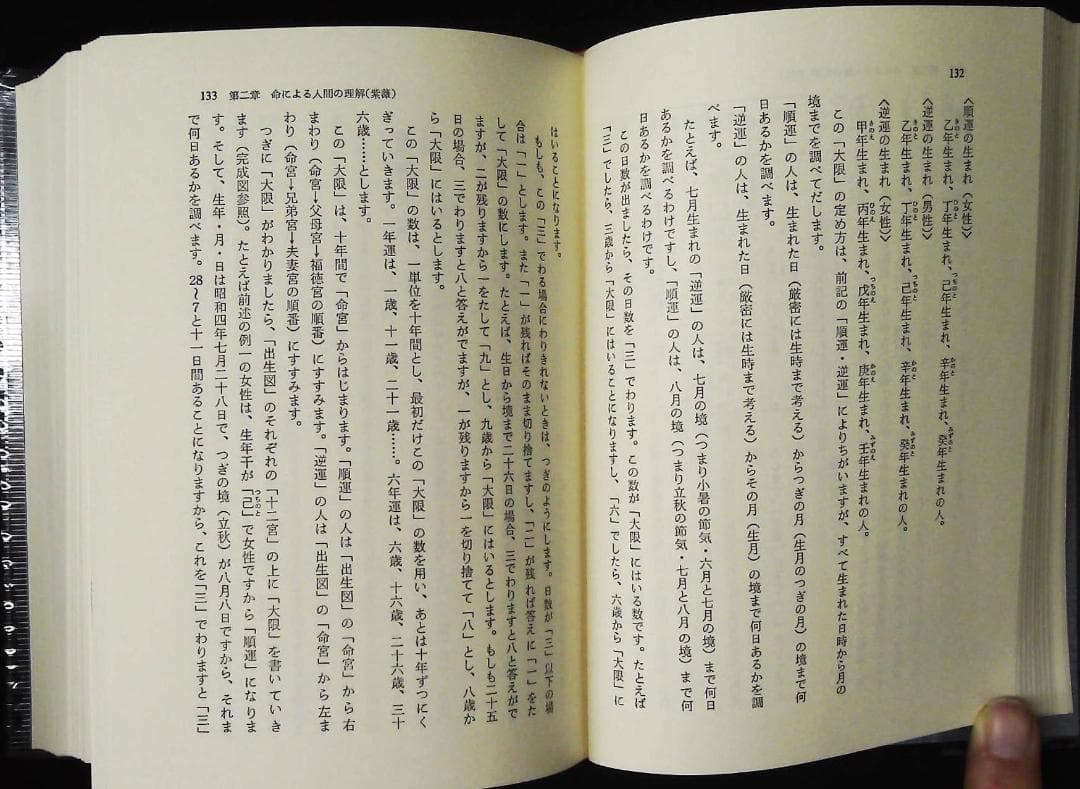 132
〈順運の生まれ(女性)〉
乙年生まれ、丁年生まれ、己年生まれ、辛年生まれ、癸年生まれの人。
〈逆運の生まれ(男性)〉
乙年生まれ、丁年生まれ、己年生まれ、辛年生まれ、癸年生まれの人。
〈逆運の生まれ(女性)〉
甲年生まれ、丙年生まれ、戊年生まれ、庚年生まれ、壬年生まれの人。
この「大限」の定め方は、前記の「順運・逆運」によりちがいますが、すべて生まれた日時から月の
境までを調べてだします。
「順運」の人は、生まれた日(厳密には生時まで考える)からつぎの月(生月のつぎの月)の境まで何
日あるかを調べます。
「逆運」の人は、生まれた日(厳密には生時まで考える)からその月(生月)の境まで何日あるかを調
べます。
たとえば、七月生まれの「逆運」の人は、七月の境(つまり小暑の節気・六月と七月の境)まで何日
あるかを調べるわけですし、「順運」の人は、八月の境(つまり立秋の節気・七月と八月の境)まで何
日あるかを調べるわけです。
この日数が出ましたら、その日数を「三」でわります。この数が「大限」にはいる数です。たとえば
「三」でしたら、三歳から「大限」にはいることになりますし、「六」でしたら、六歳から「大限」に
133 第二章 命による人間の理解(紫薇)
はいることになります。
もしも、この「三」でわる場合にわりきれないときは、つぎのようにします。日数が「三」以下の場
合は「一」とします。また「一」が残ればそのまま切り捨てますし、「二」が残れば答えに「一」をた
して「大限」の数にします。たとえば、生日から境まで二十六日の場合、三でわりますと八と答えがで
ますが、二が残りますから一をたして「九」とし、九歳から「大限」にはいるとします。もしも二十五
日の場合、三でわりますと八と答えがでますが、一が残りますから一を切り捨てて「八」とし、八歳か
ら「大限」にはいるとします。
この「大限」の数は、一単位を十年間とし、最初だけこの「大限」の数を用い、あとは十年ずつにく
ぎっていきます。一年運は、一歳、十一歳、二十一歳……。六年運は、六歳、十六歳、二十六歳、三十
六歳……とします。
この「大限」は、十年間で「命宮」からはじまります。「順運」の人は「出生図」の「命宮」から右
まわり(命宮→父母宮→福徳宮の順番)にすすみます。「逆運」の人は「出生図」の「命宮」から左ま
わり(命宮→兄弟宮→夫妻宮の順番)にすすみます。
つぎに「大限」がわかりましたら、「出生図」のそれぞれの「十二宮」の上に「大限」を書いていき
ます(完成図参照)。たとえば前述の例一の女性は、生年干が「己」で女性ですから「順運」になりま
す。そして、生年・月・日は昭和四年七月二十八日で、つぎの境(立秋)が八月八日ですから、それま
で何日あるかを調べます。28〜7と十一日間あることになりますから、これを「三」でわりますと「三」